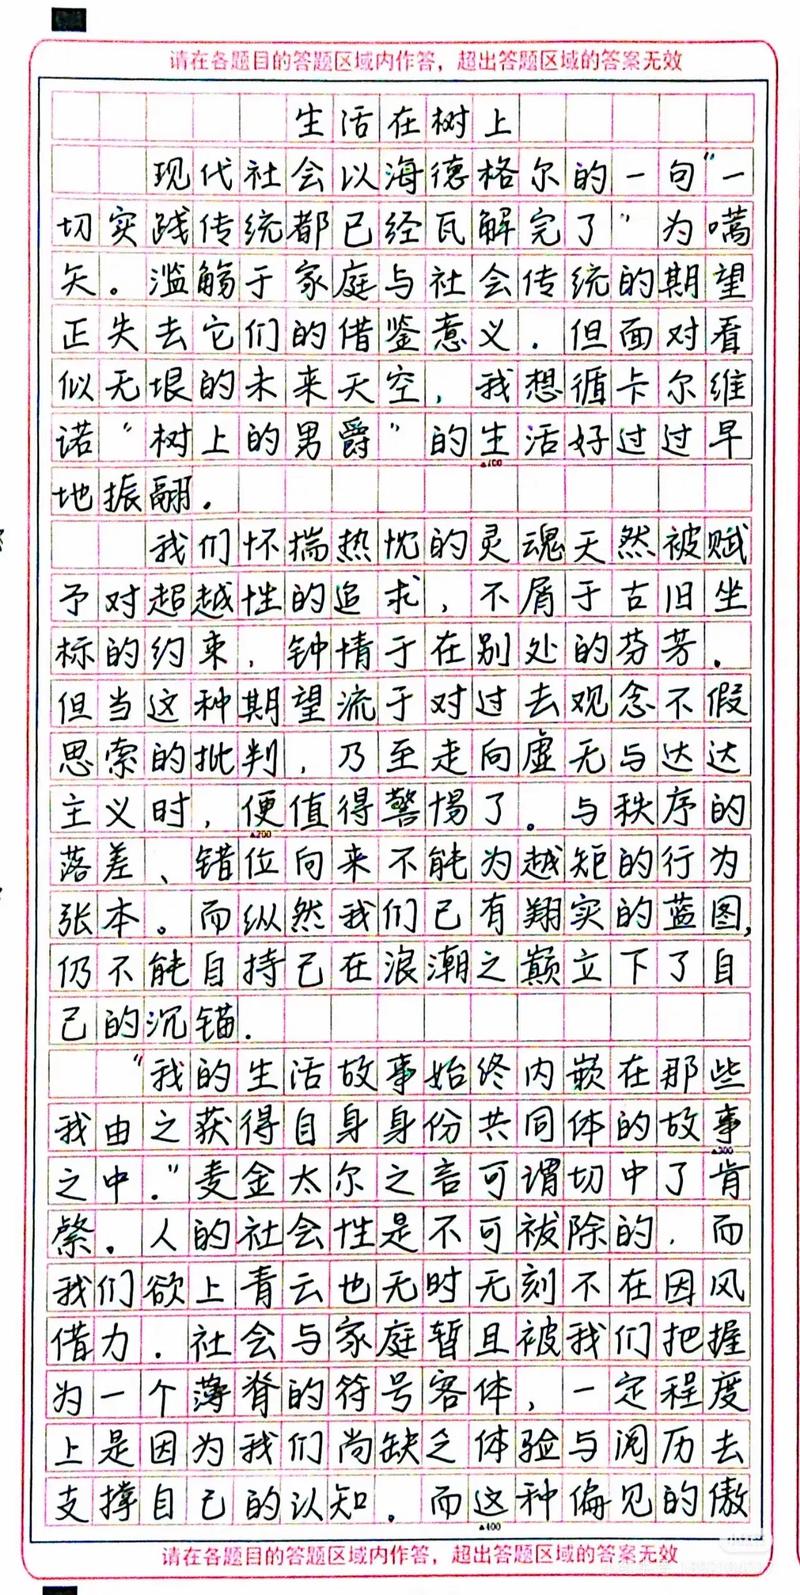 请在各题目的答题区域内作答，超出答题区域的答案无效
生活在树上
现代社会以海德格尔的一句“一
切实践传统都已经瓦解完了”为嚆
矢。滥觞于家庭与社会传统的期望
正失去它们的借鉴意义．但面对看
似无垠的未来天空，我想循卡尔维
诺“树上的男爵”的生活好过过早
▲100
地振翮．
我们怀揣热忱的灵魂天然被赋
予对超越性的追求，不屑于古旧坐
标的约束，钟情于在别处的芬芳．
但当这种期望流于对过去观念不假
思索的批判，乃至走向虚无与达达
主义时，便值得警惕了。与秩序的
▲200
落差、错位向来不能为越矩的行为
张本。而纵然我们已有翔实的蓝图，
仍不能自持己在浪潮之巅立下了自
己的沉锚．
“我的生活故事始终内嵌在那些
我由之获得自身身份共同体的故事
▲300
之中．”麦金太尔之言可谓切中了肯
綮．人的社会性是不可祓除的，而
我们欲上青云也无时无刻不在因风
借力．社会与家庭暂且被我们把握
为一个薄脊的符号客体，一定程度
上是因为我们尚缺乏体验与阅历去
支撑自己的认知．而这种偏见的傲
▲400
请在各题目的答题区域内作答，超出答题区域的答案无效